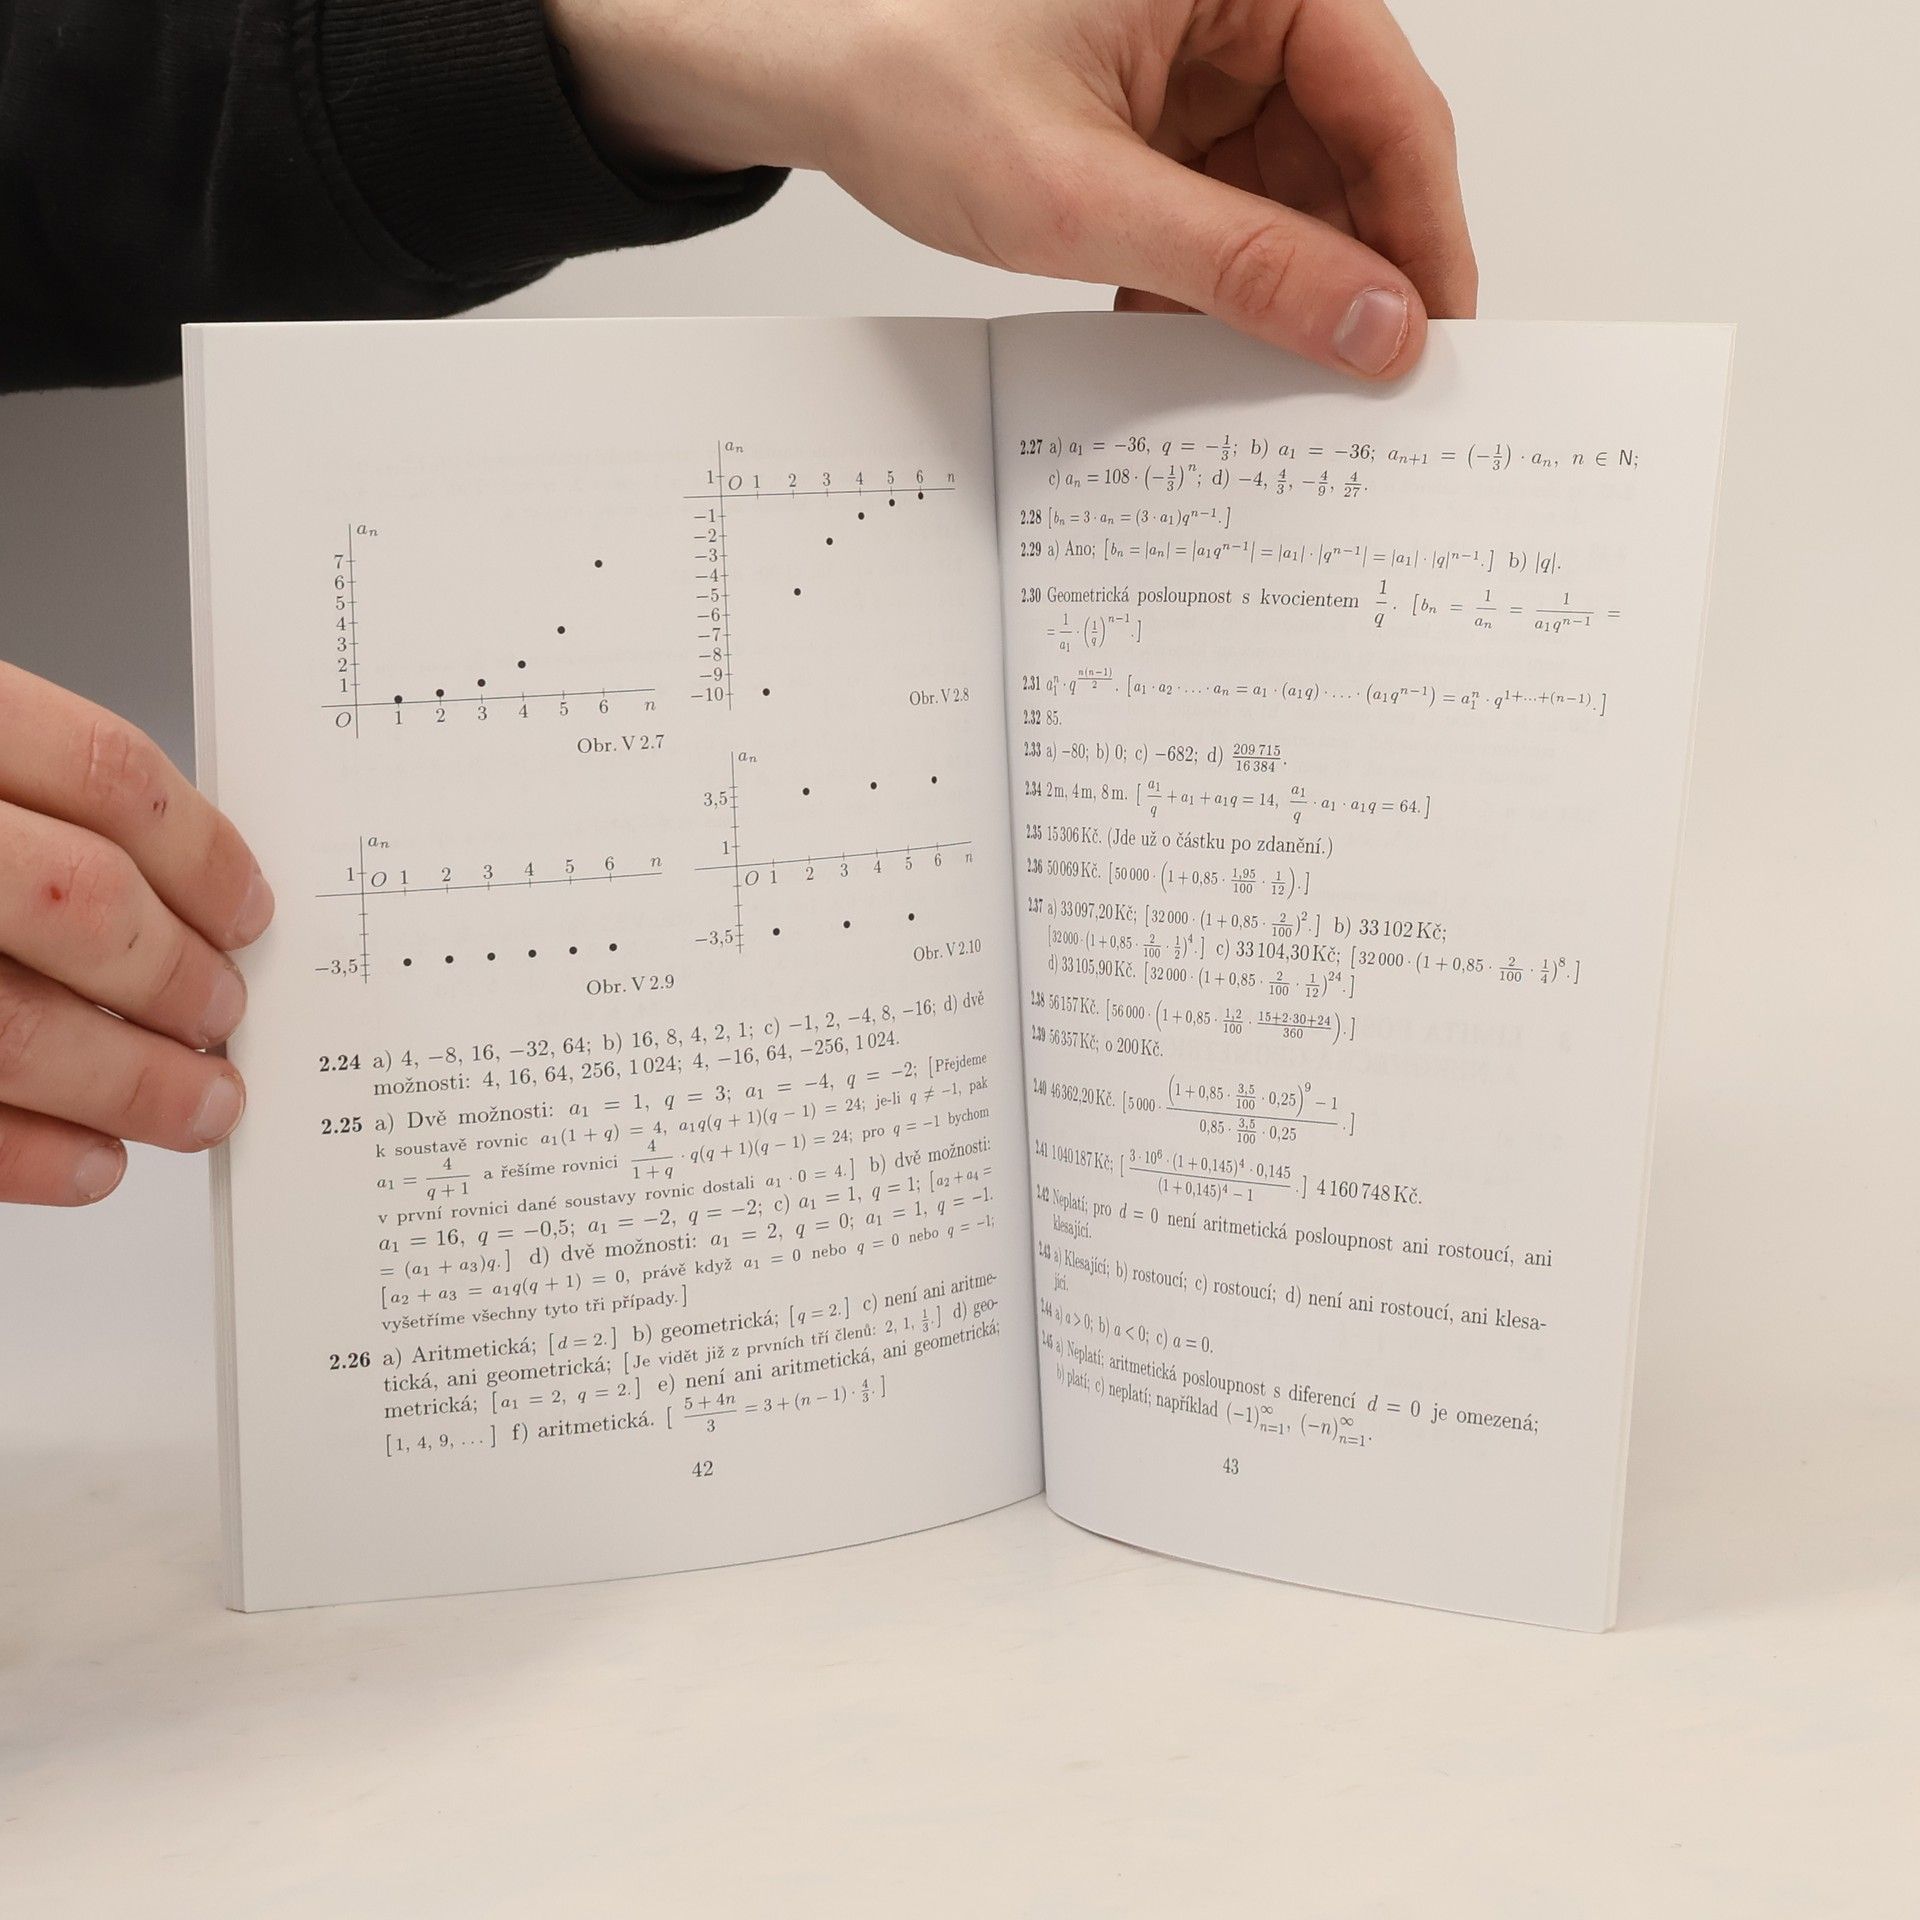 a_n
7
6
5
4
3
2
1
O 1 2 3 4 5 6 n
Obr. V 2.7
a_n
1 O 1 2 3 4 5 6 n
−1
−2
−3
−4
−5
−6
−7
−8
−9
−10
Obr. V 2.8
a_n
1 O 1 2 3 4 5 6 n
−3,5
Obr. V 2.9
a_n
3,5
1
O 1 2 3 4 5 6 n
−3,5
Obr. V 2.10
2.24 a) 4, −8, 16, −32, 64; b) 16, 8, 4, 2, 1; c) −1, 2, −4, 8, −16; d) dvě
možnosti: 4, 16, 64, 256, 1 024; 4, −16, 64, −256, 1 024.
2.25 a) Dvě možnosti: a_1 = 1, q = 3; a_1 = −4, q = −2; [Přejdeme
k soustavě rovnic a_1(1 + q) = 4, a_1q(q + 1)(q − 1) = 24; je-li q ≠ −1, pak
a_1 = 4/(q + 1) a řešíme rovnici 4/(1 + q) · q(q + 1)(q − 1) = 24; pro q = −1 bychom
v první rovnici dané soustavy rovnic dostali a_1 · 0 = 4.] b) dvě možnosti:
a_1 = 16, q = −0,5; a_1 = −2, q = −2; c) a_1 = 1, q = 1; [a_2 + a_4 =
= (a_1 + a_3)q.] d) dvě možnosti: a_1 = 2, q = 0; a_1 = 1, q = −1.
[a_2 + a_3 = a_1q(q + 1) = 0, právě když a_1 = 0 nebo q = 0 nebo q = −1;
vyšetříme všechny tyto tři případy.]
2.26 a) Aritmetická; [d = 2.] b) geometrická; [q = 2.] c) není ani aritme-
tická, ani geometrická; [Je vidět již z prvních tří členů: 2, 1, 1/3.] d) geo-
metrická; [a_1 = 2, q = 2.] e) není ani aritmetická, ani geometrická;
[1, 4, 9, ...] f) aritmetická. [(5 + 4n)/3 = 3 + (n − 1) · 4/3.]
42
2.27 a) a_1 = −36, q = −1/3; b) a_1 = −36; a_{n+1} = (−1/3) · a_n, n ∈ N;
c) a_n = 108 · (−1/3)^n; d) −4, 4/3, −4/9, 4/27.
2.28 [b_n = 3 · a_n = (3 · a_1)q^{n−1}.]
2.29 a) Ano; [b_n = |a_n| = |a_1q^{n−1}| = |a_1| · |q^{n−1}| = |a_1| · |q|^{n−1}.] b) |q|.
2.30 Geometrická posloupnost s kvocientem 1/q. [b_n = 1/a_n = 1/(a_1q^{n−1}) =
= 1/a_1 · (1/q)^{n−1}.]
2.31 a_1^n · q^{n(n−1)/2}. [a_1 · a_2 · ... · a_n = a_1 · (a_1q) · ... · (a_1q^{n−1}) = a_1^n · q^{1+...+(n−1)}.]
2.32 85.
2.33 a) −80; b) 0; c) −682; d) 209 715/16 384.
2.34 2 m, 4 m, 8 m. [a_1/q + a_1 + a_1q = 14, a_1/q · a_1 · a_1q = 64.]
2.35 15 306 Kč. (Jde už o částku po zdanění.)
2.36 50 069 Kč. [50 000 · (1 + 0,85 · 1,95/100 · 1/12).]
2.37 a) 33 097,20 Kč; [32 000 · (1 + 0,85 · 2/100)^2.] b) 33 102 Kč;
[32 000 · (1 + 0,85 · 2/100 · 1/2)^4.] c) 33 104,30 Kč; [32 000 · (1 + 0,85 · 2/100 · 1/4)^8.]
d) 33 105,90 Kč. [32 000 · (1 + 0,85 · 2/100 · 1/12)^{24}.]
2.38 56 157 Kč. [56 000 · (1 + 0,85 · 1,2/100 · (15+2·30+24)/360).]
2.39 56 357 Kč; o 200 Kč.
2.40 46 362,20 Kč. [5 000 · ((1 + 0,85 · 3,5/100 · 0,25)^9 − 1)/(0,85 · 3,5/100 · 0,25).]
2.41 1 040 187 Kč; [(3 · 10^6 · (1 + 0,145)^4 · 0,145)/((1 + 0,145)^4 − 1).] 4 160 748 Kč.
2.42 Neplatí; pro d = 0 není aritmetická posloupnost ani rostoucí, ani
klesající.
2.43 a) Klesající; b) rostoucí; c) rostoucí; d) není ani rostoucí, ani klesa-
jící.
2.44 a) a > 0; b) a < 0; c) a = 0.
2.45 a) Neplatí; aritmetická posloupnost s diferencí d = 0 je omezená;
b) platí; c) neplatí; například (−1)_{n=1}^∞, (−n)_{n=1}^∞.
43